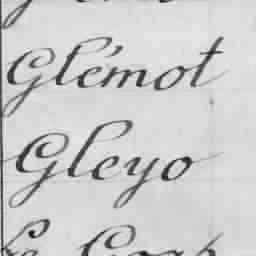 Glémot
Gleyo